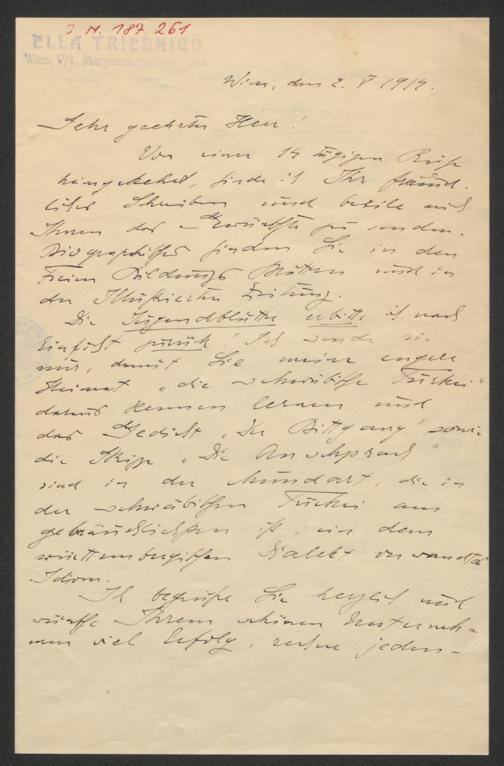 I. N. 187.261
ELLA TRIEBNIGG
Wien, V/1. Margarethenstrasse
Wien, den 2. V 1919.
Sehr geehrter Herr!
Von einer 14 tägigen Reise
heimgekehrt, finde ich Ihr freund-
liches Schreiben und beeile mich
Ihnen das Gewünschte zu senden.
Biographisches finden Sie in den
Freien Bildungs Blättern und in
der Illustrierten Zeitung.
Die Jugendblätter erbitte ich nach
Einsicht zurück! Ich sende sie
nur, damit Sie meine engere
Heimat "die schwäbische Türkei"
daraus kennen lernen und
das Gedicht "Der Bittgang" sowie
die Skizze "Die Ansprach"
sind in der Mundart, die in
der schwäbischen Türkei am
gebräuchlichsten ist, ein dem
württembergischen Dialekt verwandtes
Idiom.
Ich begrüße Sie herzlich und
wünsche Ihrem schönen Unterneh-
men viel Erfolg, rechne jeden-